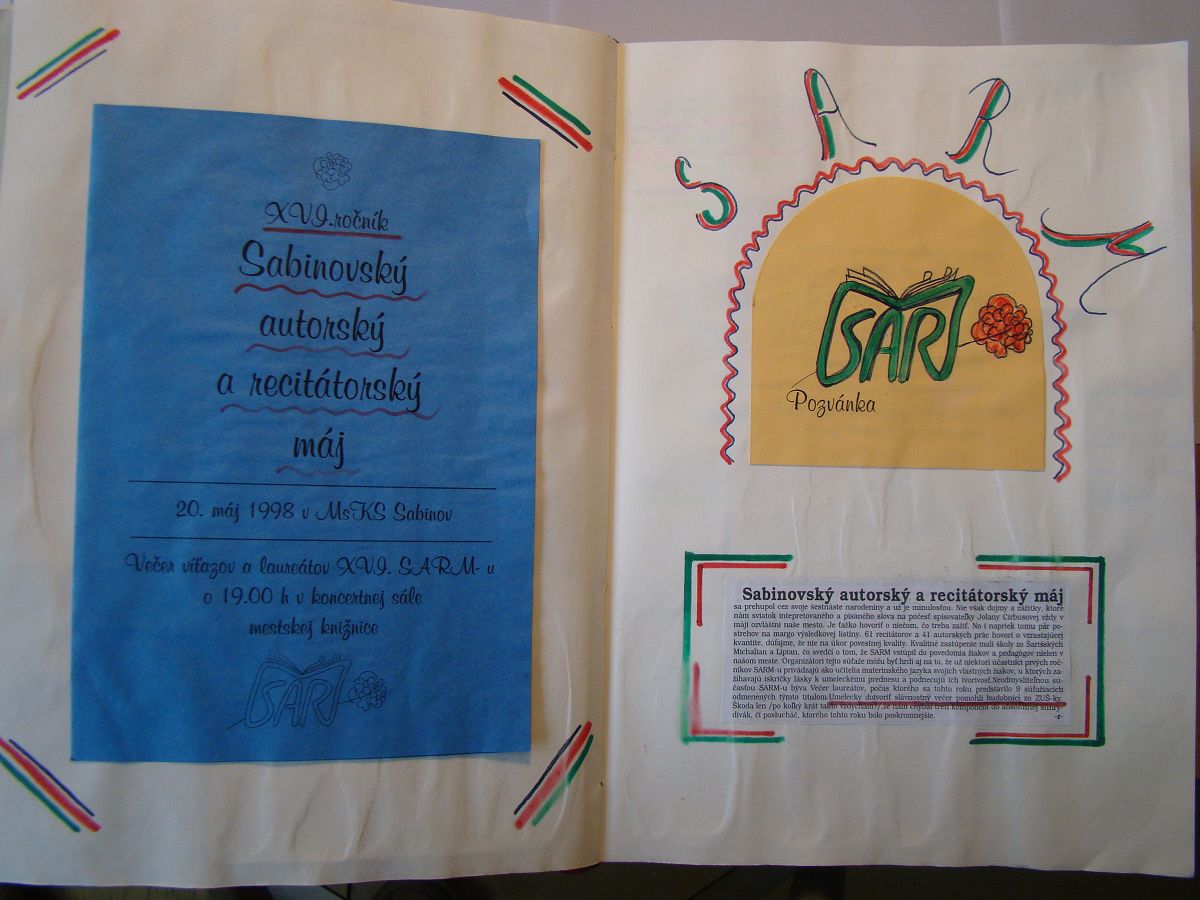 XVI. ročník
Sabinovský
autorský
a recitátorský
máj
20. máj 1998 v MsKS Sabinov
Večer víťazov a laureátov XVI. SARM-u
o 19.00 h v koncertnej sále
mestskej knižnice
SARM
S A R M
SARM
Pozvánka
Sabinovský autorský a recitátorský máj
sa prehupol cez svoje šestnáste narodeniny a už je minulosťou. Nie však dojmy a zážitky, ktoré
nám sviatok intepretovaného a písaného slova na počesť spisovateľky Jolany Cirbusovej vždy v
máji ozvláštni naše mesto. Je ťažko hovoriť o niečom, čo treba zažiť. No i napriek tomu pár po-
strehov na margo výsledkovej listiny. 61 recitátorov a 41 autorských prác hovorí o vzrastajúcej
kvantite, dúfajme, že nie na úkor povestnej kvality. Kvalitné zastúpenie mali školy zo Šarišských
Michalian a Lipian, čo svedčí o tom, že SARM vstúpil do povedomia žiakov a pedagógov nielen v
našom meste. Organizátori tejto súťaže môžu byť hrdí aj na to, že už niektorí účastníci prvých roč-
níkov SARM-u privádzajú ako učitelia materinského jazyka svojich vlastných žiakov, u ktorých za-
žíhavajú iskričky lásky k umeleckému prednesu a podnecujú ich tvorivosť.Neodmysliteľnou sú-
časťou SARM-u býva Večer laureátov, počas ktorého sa tohto roku predstavilo 9 súťažiacich
odmenených týmto titulom.Umelecky dotvoriť slávnostný večer pomohli hudobníci zo ZUŠ-ky.
Škoda len /po koľký krát takto vzdychám?/,že nám chýbal tretí komponent do absolútnej súhry-
divák, či poslucháč, ktorého tohto roku bolo poskromnejšie.
-r-